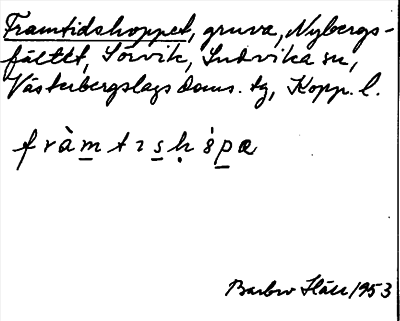 Framtidshoppet, gruva, Nybergs-
fältet, Sörvik, Ludvika sn,
Västerbergslags doms. tg, Kopp. l.
fràmtıshópæ
Barbro Häll 1953